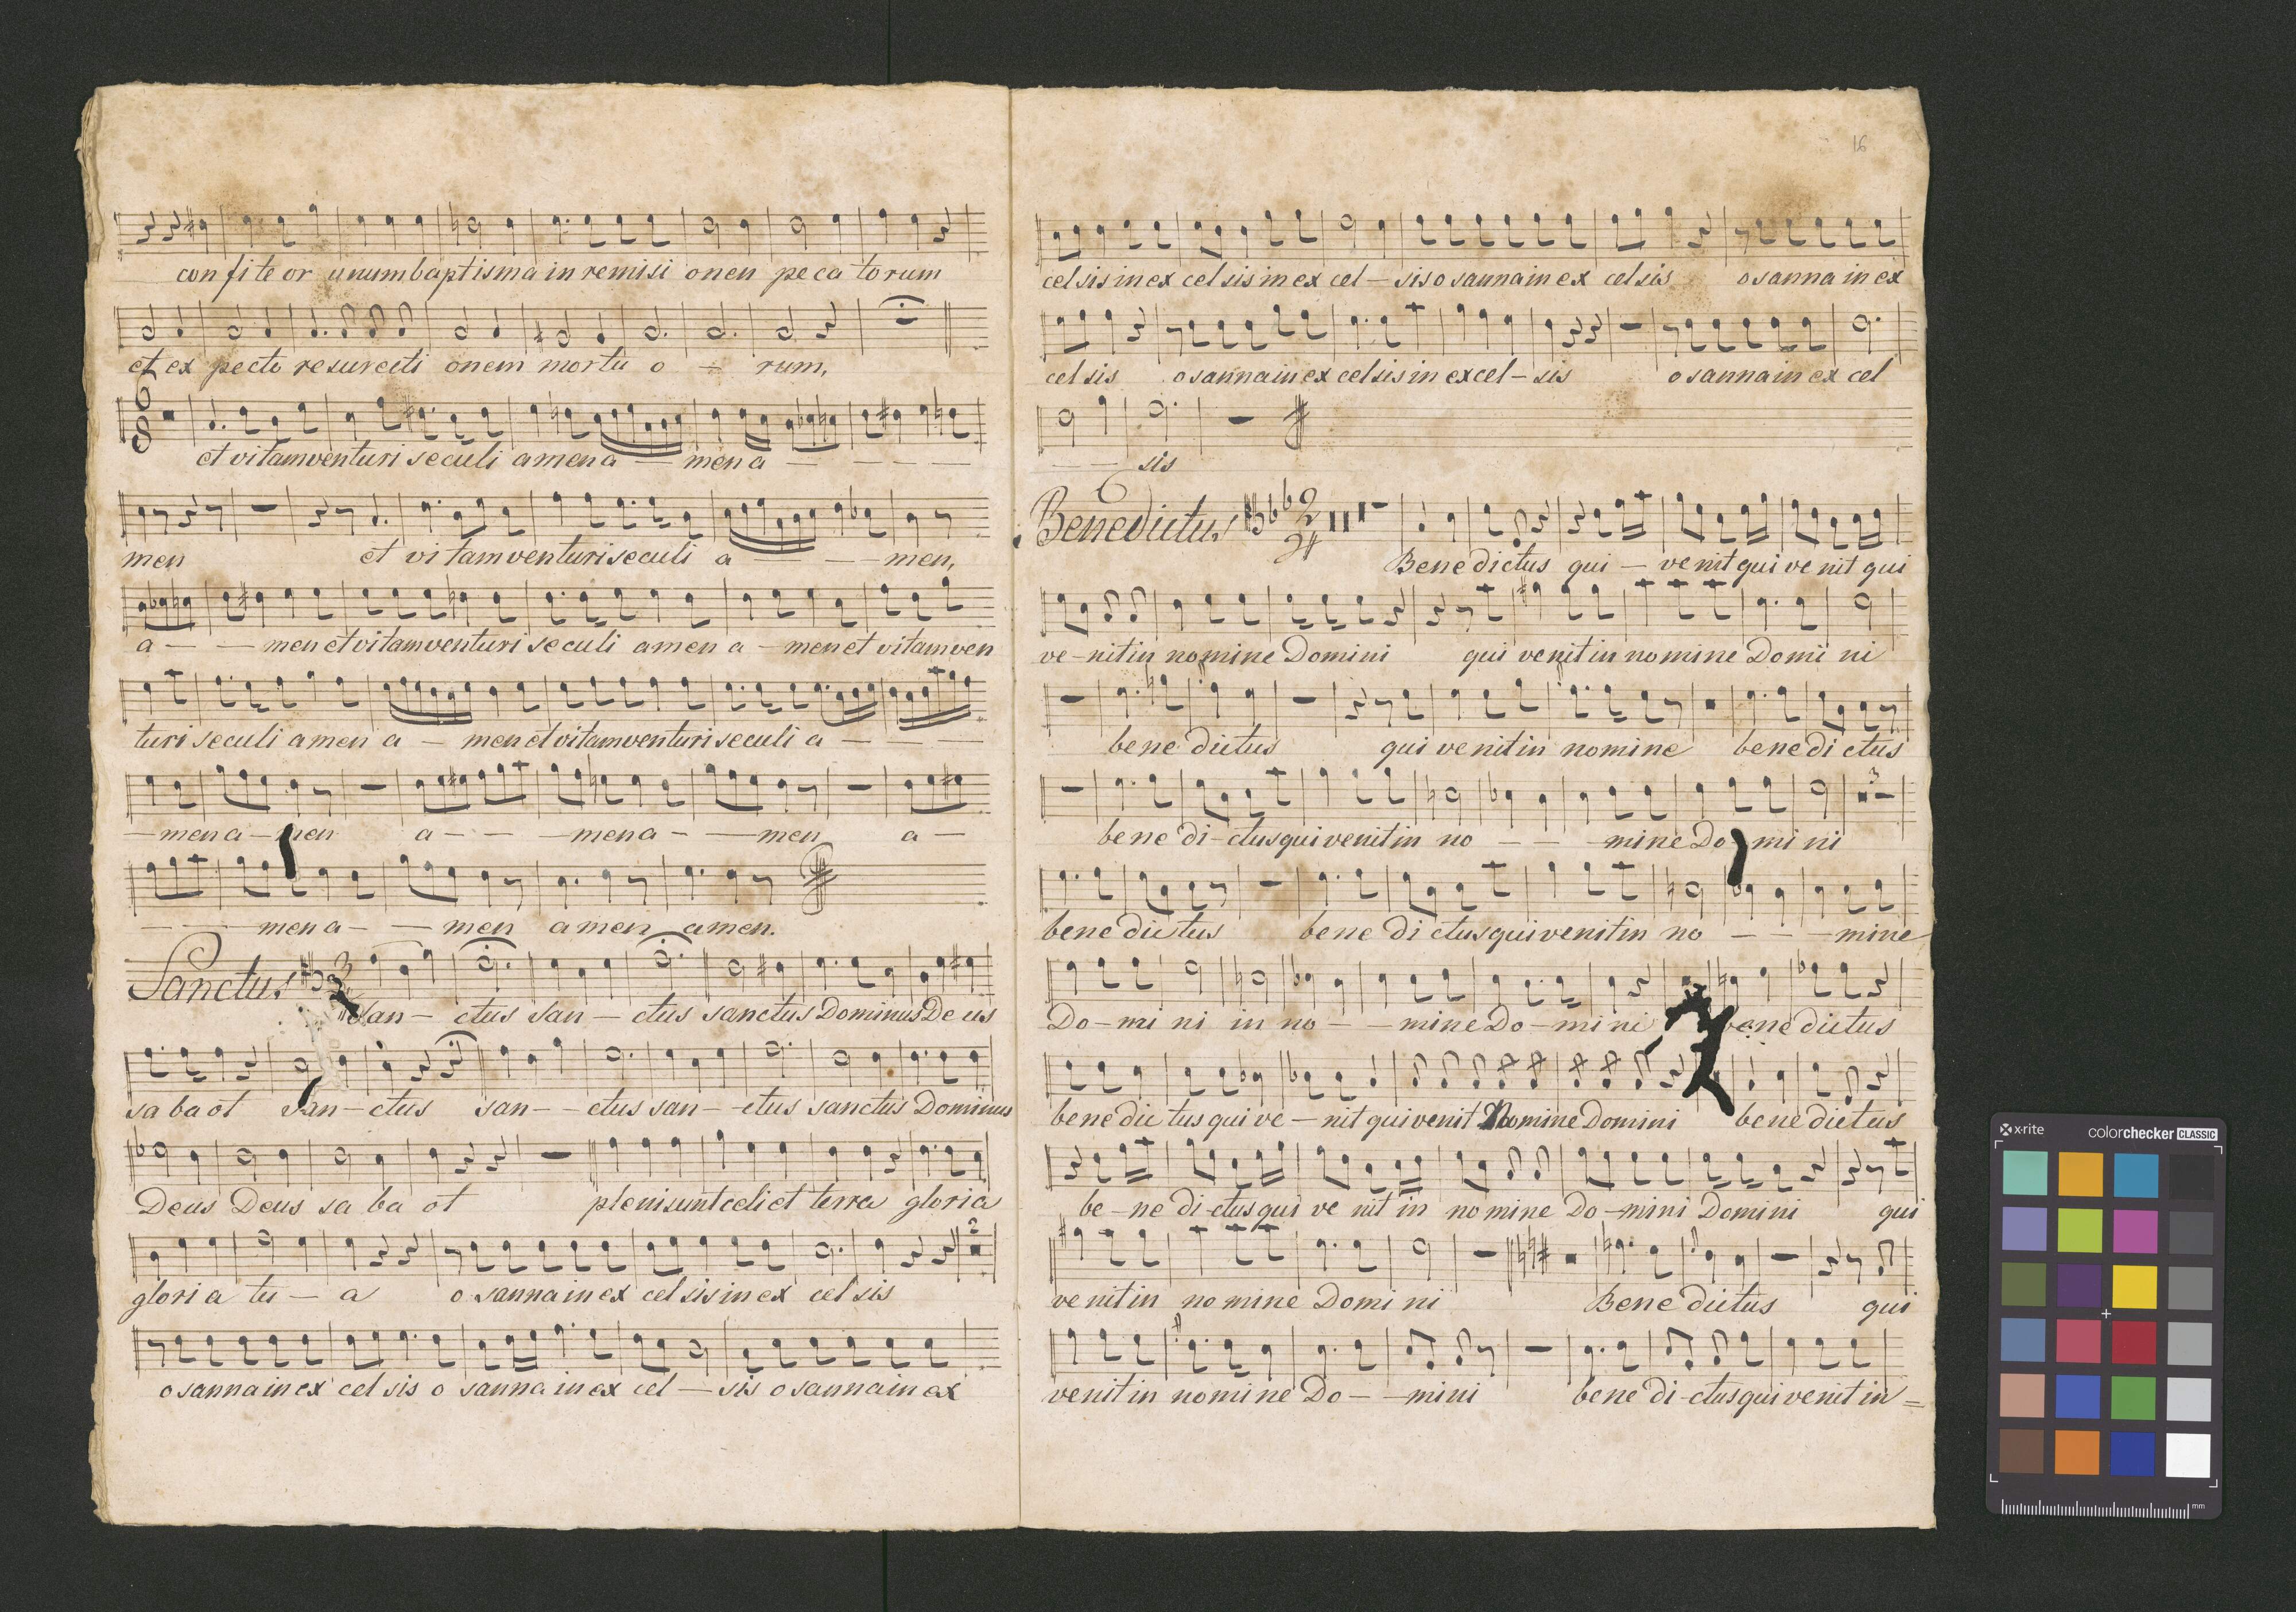 con fi te or unum baptisma in remisi onen pe ca to rum
et ex pecto resurecti onem mortu o - rum,
6 8
et vitam venturi seculi amen a - men a - - - -
men et vi tam venturi seculi a - - - men,
a - - men et vitam venturi seculi amen a - men et vitam ven
turi seculi amen a - men et vitam venturi seculi a - - -
- men a - men a - - - men a - - men a -
- - - men a - - men amen amen.
Sanctus 3
San - ctus san - ctus sanctus Dominus De us
sa ba ot san - ctus san - - ctus san - - ctus sanctus Dominus
Deus Deus sa ba ot pleni sunt celi et terra gloria
2
glori a tu - a o sanna in ex cel sis in ex cel sis
o sanna in ex cel sis o sanna in ex cel - sis o sanna in ex
16
cel sis in ex cel sis in ex cel - sis o sanna in ex cel sis o sanna in ex
cel sis o sanna in ex cel sis in ex cel - sis o sanna in ex cel
- - sis
Benedictus 2 4
Bene dictus qui - ve nit qui ve nit qui
ve - nit in nomine Domini qui venit in nomine Domi ni
bene dictus qui ve nit in nomine bene di ctus
3
bene di - ctus qui venit in no - - - mine Do mi ni
bene dictus bene di ctus qui venit in no - - - mine
Do - mi ni in no - - mine Do - mi ni bene dictus
bene dic tus qui ve - nit qui venit Nomine Domini bene dictus
be - ne di - ctus qui ve nit in no mine Do - mini Domini qui
venit in no mine Domi ni Bene dictus qui
venit in nomine Do - - mini bene di - ctus qui venit in =
x-rite
colorchecker CLASSIC
mm